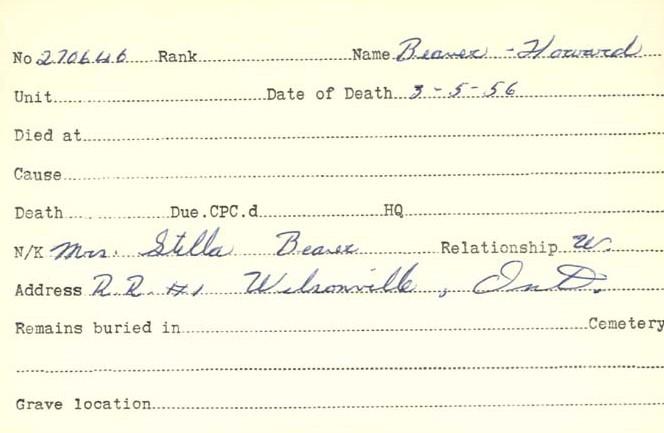 No 270646 Rank Name Beaver - Howard
Unit Date of Death 3-5-56
Died at
Cause
Death Due.CPC.d HQ
N/K Mrs. Stella Beaver Relationship W.
Address R.R. #1 Wilsonville, Ont.
Remains buried in Cemetery
Grave location